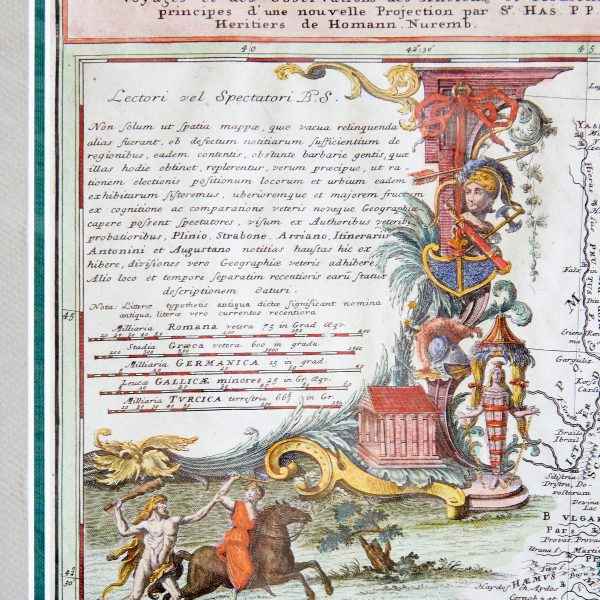 Voyages et des Observations des Anciens et
principes d'une nouvelle Projection par Sr. HAS. P.P
Heritiers de Homann. Nuremb.
40 42°.30' 45
Lectori vel Spectatori B. S.
Non solum ut spatia mappæ, quæ vacua relinquenda
alias fuerant, ob defectum notitiarum sufficientium de
regionibus, eadem contentis, obstante barbarie gentis, quæ
illas hodie obtinet, replerentur, verum præcipue, ut ra-
tionem electionis positionum locorum et urbium eadem
exhibitarum sisteremus, uberioremque et majorem fructum
ex cognitione ac comparatione veteris novæque Geographiæ
capere possent spectatores, visum ex Authoribus veteribus
probatioribus, Plinio, Strabone, Arriano, Itinerariis
Antonini et Augustano notitias haustas hic ex
hibere, divisiones vero Geographiæ veteris adhibere.
Alio loco et tempore separatim recentioris earū status
descriptionem daturi.
Nota: Literæ typothetis antiqua dictæ significant nomina
antiqua, literæ vero currentes recentiora
45
Milliaria ROMANA vetera 75 in Grad. æqv.
Stadia GRÆCA vetera 600 in gradu
Milliaria GERMANICA 15 in grad.
Leucæ GALLICÆ minores 25 in Gr. æqv.
Milliaria TVRCICA terrestria 66⅔ in Gr.
YAS
Hieras
PRVTVS
Falx
M
Gargulit
Braila
Ibrail
Silistria
Dristra, Do-
rostorum
Devina
B VLGAR
Provat. Provat
HÆMVS
42
30